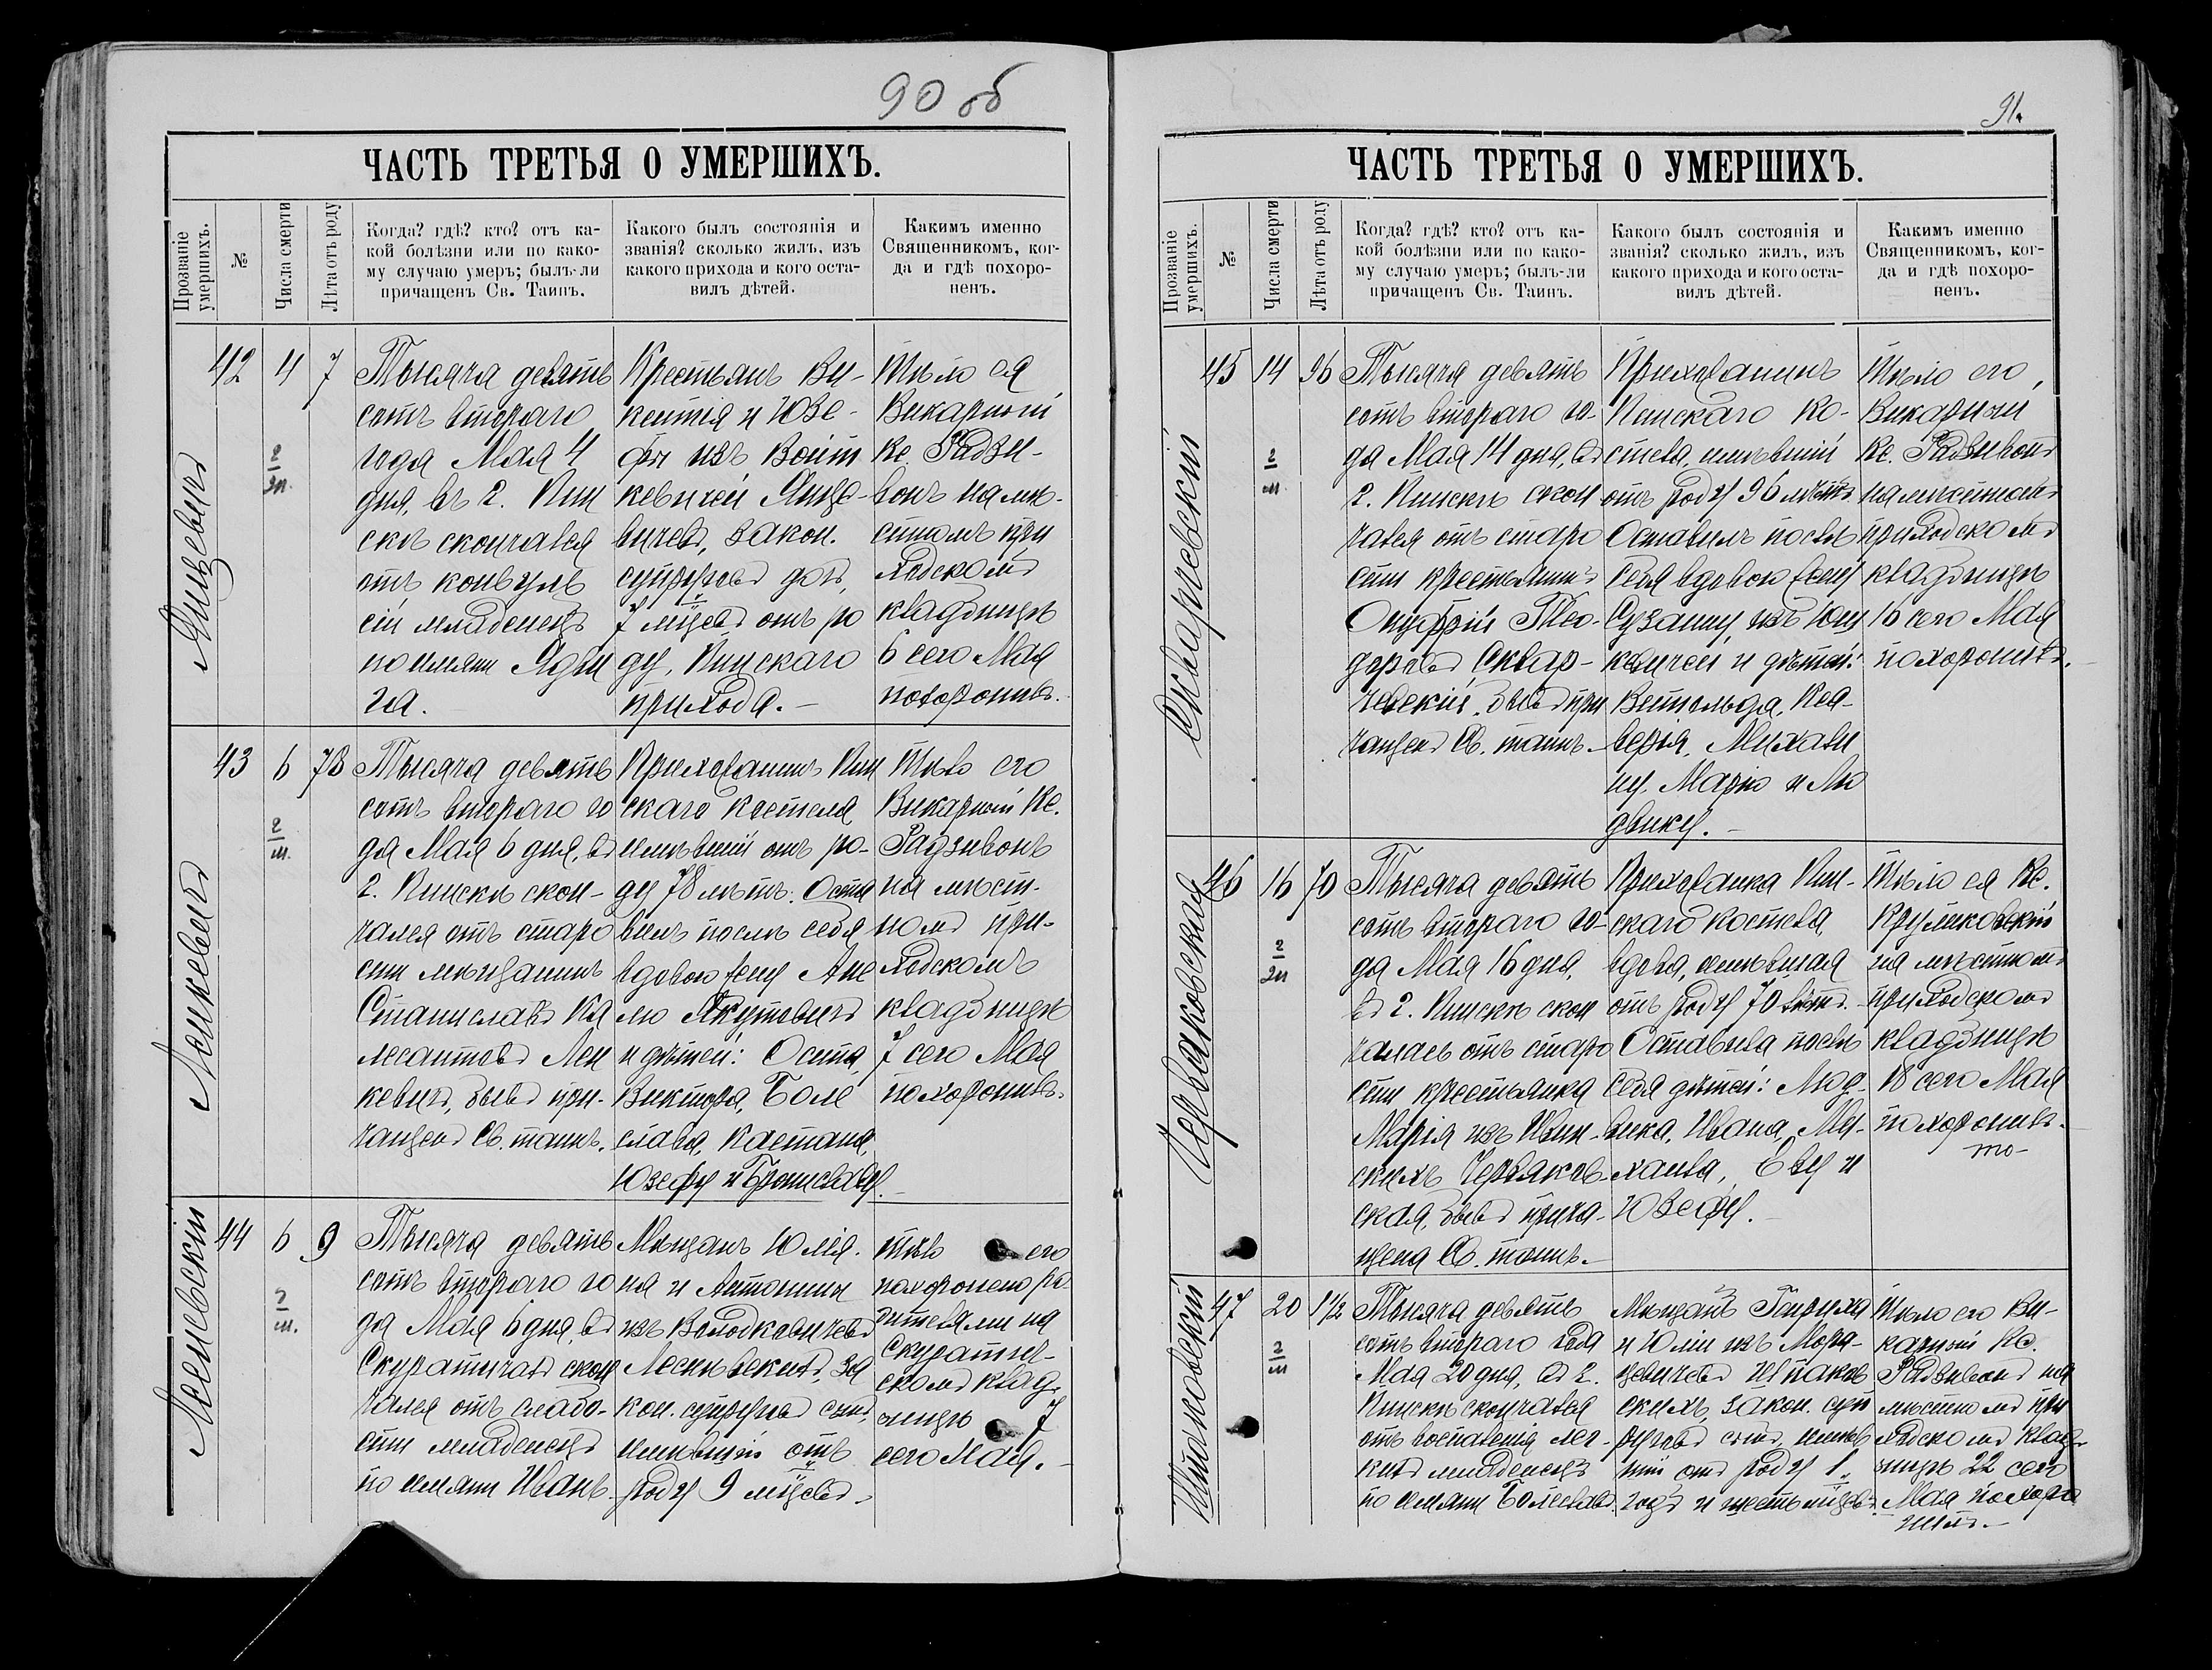 90 об
ЧАСТЬ ТРЕТЬЯ О УМЕРШИХЪ.
Прозваніе умершихъ.
№
Числа смерти
Лѣта отъ роду
Когда? гдѣ? кто? отъ ка-
кой болѣзни или по како-
му случаю умеръ; былъ-ли
причащенъ Св. Таинъ.
Какого былъ состоянія и
званія? сколько жилъ, изъ
какого прихода и кого оста-
вилъ дѣтей.
Какимъ именно
Священникомъ, ког-
да и гдѣ похоро-
ненъ.
Янцевичъ
42
4
7
Тысяча девять
сотъ втораго
года Мая 4
дня, въ г. Пин
скѣ скончался
отъ конвуль
сій младенецъ
по имяни Ядви
га.
Крестьянъ Ви-
кентія и Юзе-
фы изъ Войт
кевичей Янце-
вичевъ, закон.
супруговъ дочь,
7 мцевъ отъ ро
ду, Пинскаго
прихода. -
Тѣло ея
Викарный
Кс Радзи-
вонъ на мѣ-
стномъ при
ходскомъ
кладбищѣ
6 сего Мая
похоронилъ.
Ленкевичъ
43
6
78
Тысяча девять
сотъ втораго го
да Мая 6 дня, въ
г. Пинскѣ скон-
чался отъ старо
сти мѣщанинъ
Станиславъ Ка
лесантовъ Лен
кевичъ, бывъ при-
чащенъ Св. таинъ.
Прихожанинъ Пин
скаго костела
имѣвшій отъ ро-
ду 78 лѣтъ. Оста
вилъ послѣ себя
вдовою жену Ане
лю Якутовичъ
и дѣтей: Осипа,
Виктора, Боле
слава, Каетана,
Юзефу и Брониславу.
Тѣло его
Викарный Кс.
Радзивонъ
на мѣст-
номъ при-
ходскомъ
кладбищѣ
7 сего Мая
похоронилъ.
Лесневскій
44
6
9
Тысяча девять
сотъ втораго го
да Мая 6 дня, въ
Скуратичахъ скон
чался отъ слабо-
сти младенецъ
по имяни Иванъ.
Мѣщанъ Юлія-
на и Антонины
изъ Володковичевъ
Лесневскихъ, за
кон. супруговъ сынъ,
имѣвшій отъ
роду 9 мцевъ.
Тѣло его
похоронено ро-
дителями на
Скуратич-
скомъ клад-
бищѣ 7
сего Мая. -
91.
ЧАСТЬ ТРЕТЬЯ О УМЕРШИХЪ.
Прозваніе умершихъ.
№
Числа смерти
Лѣта отъ роду
Когда? гдѣ? кто? отъ ка-
кой болѣзни или по како-
му случаю умеръ; былъ-ли
причащенъ Св. Таинъ.
Какого былъ состоянія и
званія? сколько жилъ, изъ
какого прихода и кого оста-
вилъ дѣтей.
Какимъ именно
Священникомъ, ког-
да и гдѣ похоро-
ненъ.
Скварчевскій
45
14
96
Тысяча девять
сотъ втораго го-
да Мая 14 дня, въ
г. Пинскѣ скон
чался отъ старо
сти крестьянинъ
Онуфрій Тео-
доровъ Сквар-
чевскій, бывъ при
чащенъ Св. таинъ.
Прихожанинъ
Пинскаго ко-
стела, имѣвшій
отъ роду 96 лѣтъ
Оставилъ послѣ
себя вдовою жену
Сузанну изъ Юш
кевичей и дѣтей:
Витольда, Кса-
верія, Михали
ну, Марію и Лю
двику. -
Тѣло его,
Викарный
Кс. Радзивонъ
на мѣстномъ
приходскомъ
кладбищѣ
16 сего Мая
похоронилъ.
Червяковская
46
16
70
Тысяча девять
сотъ втораго го-
да Мая 16 дня,
въ г. Пинскѣ скон
чалась отъ старо
сти крестьянка
Марія изъ Илин-
скихъ Червяков-
ская, бывъ прича-
щена Св. таинъ. -
Прихожанка Пин-
скаго костела
вдова, имѣвшая
отъ роду 70 лѣтъ.
Оставила послѣ
себя дѣтей: Люд-
вика, Ивана, Ми-
хаила, Еву и
Юзефу. -
Тѣло ея Кс.
Круликовскій
на мѣстномъ
приходскомъ
кладбищѣ
18 сего Мая
похоронилъ.
Шпаковскій
47
20
1 1/2
Тысяча девять
сотъ втораго года
Мая 20 дня, въ г.
Пинскѣ скончался
отъ воспаленія лег-
кихъ младенецъ
по имяни Болеславъ.
Мѣщанъ Генриха
и Юліи изъ Мора-
цевичевъ Шпаков
скихъ, закон. суп
руговъ сынъ, имѣв
шій отъ роду 1
годъ и шесть мцевъ.
Тѣло его Ви-
карный Кс.
Радзивонъ на
мѣстномъ при
ходскомъ клад-
бищѣ 22 сего
Мая похоро
нилъ. -